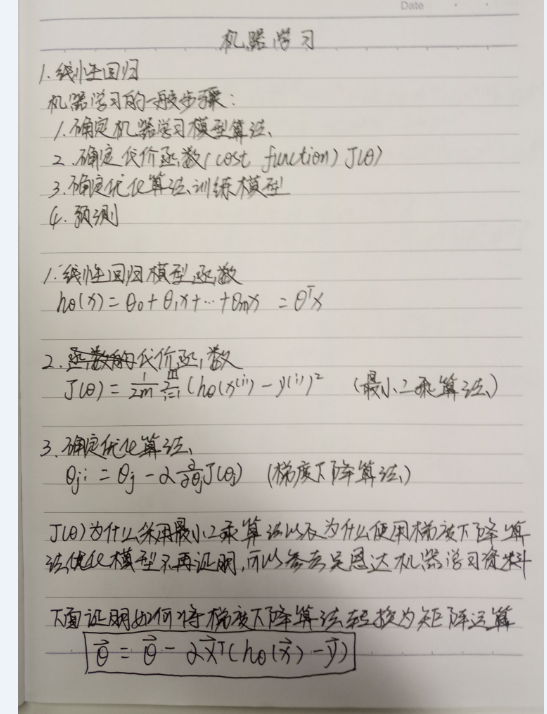 Date
机器学习
1.线性回归
机器学习的一般步骤:
1.确定机器学习模型算法、
2.确定代价函数(cost function) J(θ)
3.确定优化算法、训练模型
4.预测
1.线性回归模型函数
hθ(x) = θ₀ + θ₁x + ··· + θₘx = θᵀx
2.函数的代价函数
J(θ) = 1/2m Σᵢ₌₁ᵐ (hθ(x⁽ⁱ⁾) - y⁽ⁱ⁾)² (最小二乘算法)
3.确定优化算法、
θj: = θj - α ∂/∂θj J(θj) (梯度下降算法)
J(θ)为什么采用最小二乘算法以及为什么使用梯度下降算
法优化模型不再证明,可以参考吴恩达机器学习资料
下面证明如何将梯度下降算法转换为矩阵运算
θ⃗ = θ⃗ - αx⃗ᵀ(hθ(x⃗) - y⃗)